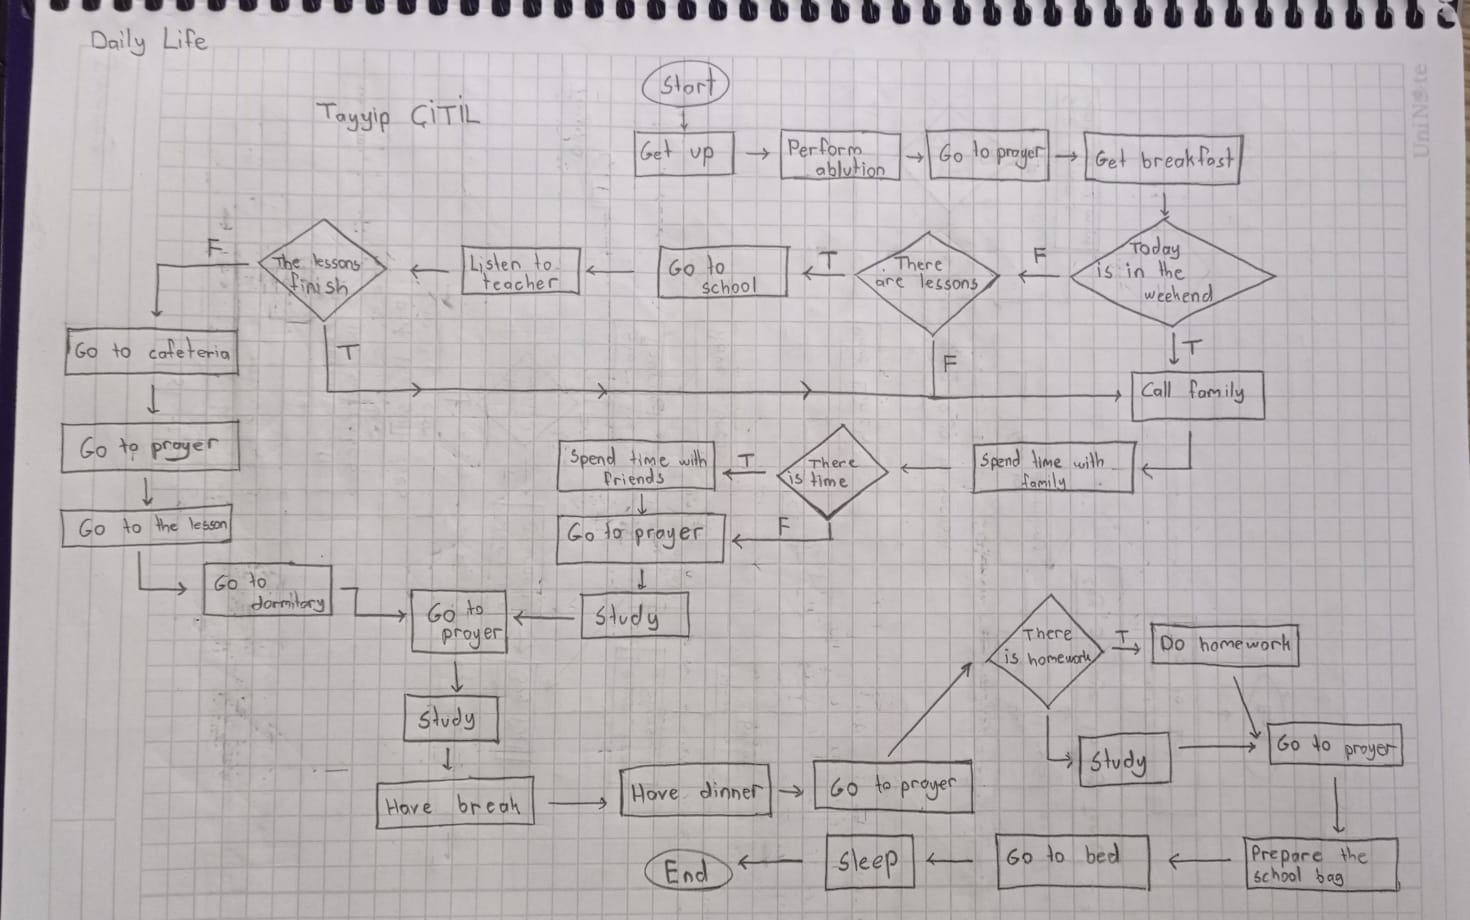 Daily Life
Tayyip ÇİTİL
Start
Get up
Perform
ablution
Go to prayer
Get breakfast
Today
is in the
weekend
F
T
There
are lessons
T
F
Go to
school
Listen to
teacher
The lessons
finish
F
T
Go to cafeteria
Go to prayer
Go to the lesson
Go to
dormitory
Call family
Spend time with
family
There
is time
T
F
Spend time with
friends
Go to prayer
Study
Go to
prayer
Study
Have break
Have dinner
Go to prayer
There
is homework
T
Do homework
Study
Go to prayer
Prepare the
school bag
Go to bed
Sleep
End
UniNote